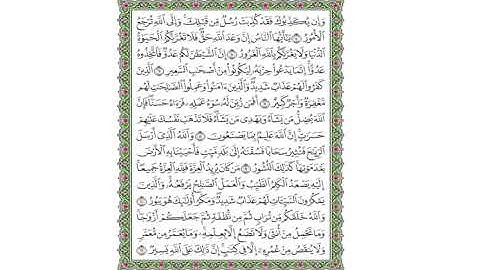 وَإِن يُكَذِّبُوكَ فَقَدْ كُذِّبَتْ رُسُلٌ مِّن قَبْلِكَ ۚ وَإِلَى ٱللَّهِ تُرْجَعُ
ٱلْأُمُورُ ۝٤ يَـٰٓأَيُّهَا ٱلنَّاسُ إِنَّ وَعْدَ ٱللَّهِ حَقٌّ ۖ فَلَا تَغُرَّنَّكُمُ ٱلْحَيَوٰةُ
ٱلدُّنْيَا ۖ وَلَا يَغُرَّنَّكُم بِٱللَّهِ ٱلْغَرُورُ ۝٥ إِنَّ ٱلشَّيْطَـٰنَ لَكُمْ عَدُوٌّ فَٱتَّخِذُوهُ
عَدُوًّا ۚ إِنَّمَا يَدْعُوا۟ حِزْبَهُۥ لِيَكُونُوا۟ مِنْ أَصْحَـٰبِ ٱلسَّعِيرِ ۝٦ ٱلَّذِينَ
كَفَرُوا۟ لَهُمْ عَذَابٌ شَدِيدٌ ۖ وَٱلَّذِينَ ءَامَنُوا۟ وَعَمِلُوا۟ ٱلصَّـٰلِحَـٰتِ لَهُم
مَّغْفِرَةٌ وَأَجْرٌ كَبِيرٌ ۝٧ أَفَمَن زُيِّنَ لَهُۥ سُوٓءُ عَمَلِهِۦ فَرَءَاهُ حَسَنًا ۖ فَإِنَّ
ٱللَّهَ يُضِلُّ مَن يَشَآءُ وَيَهْدِى مَن يَشَآءُ ۖ فَلَا تَذْهَبْ نَفْسُكَ عَلَيْهِمْ
حَسَرَٰتٍ ۚ إِنَّ ٱللَّهَ عَلِيمٌۢ بِمَا يَصْنَعُونَ ۝٨ وَٱللَّهُ ٱلَّذِىٓ أَرْسَلَ
ٱلرِّيَـٰحَ فَتُثِيرُ سَحَابًا فَسُقْنَـٰهُ إِلَىٰ بَلَدٍ مَّيِّتٍ فَأَحْيَيْنَا بِهِ ٱلْأَرْضَ
بَعْدَ مَوْتِهَا ۚ كَذَٰلِكَ ٱلنُّشُورُ ۝٩ مَن كَانَ يُرِيدُ ٱلْعِزَّةَ فَلِلَّهِ ٱلْعِزَّةُ جَمِيعًا ۚ
إِلَيْهِ يَصْعَدُ ٱلْكَلِمُ ٱلطَّيِّبُ وَٱلْعَمَلُ ٱلصَّـٰلِحُ يَرْفَعُهُۥ ۚ وَٱلَّذِينَ
يَمْكُرُونَ ٱلسَّيِّـَٔاتِ لَهُمْ عَذَابٌ شَدِيدٌ ۖ وَمَكْرُ أُو۟لَـٰٓئِكَ هُوَ يَبُورُ ۝١٠
وَٱللَّهُ خَلَقَكُم مِّن تُرَابٍ ثُمَّ مِن نُّطْفَةٍ ثُمَّ جَعَلَكُمْ أَزْوَٰجًا ۚ
وَمَا تَحْمِلُ مِنْ أُنثَىٰ وَلَا تَضَعُ إِلَّا بِعِلْمِهِۦ ۚ وَمَا يُعَمَّرُ مِن مُّعَمَّرٍ
وَلَا يُنقَصُ مِنْ عُمُرِهِۦٓ إِلَّا فِى كِتَـٰبٍ ۚ إِنَّ ذَٰلِكَ عَلَى ٱللَّهِ يَسِيرٌ ۝١١